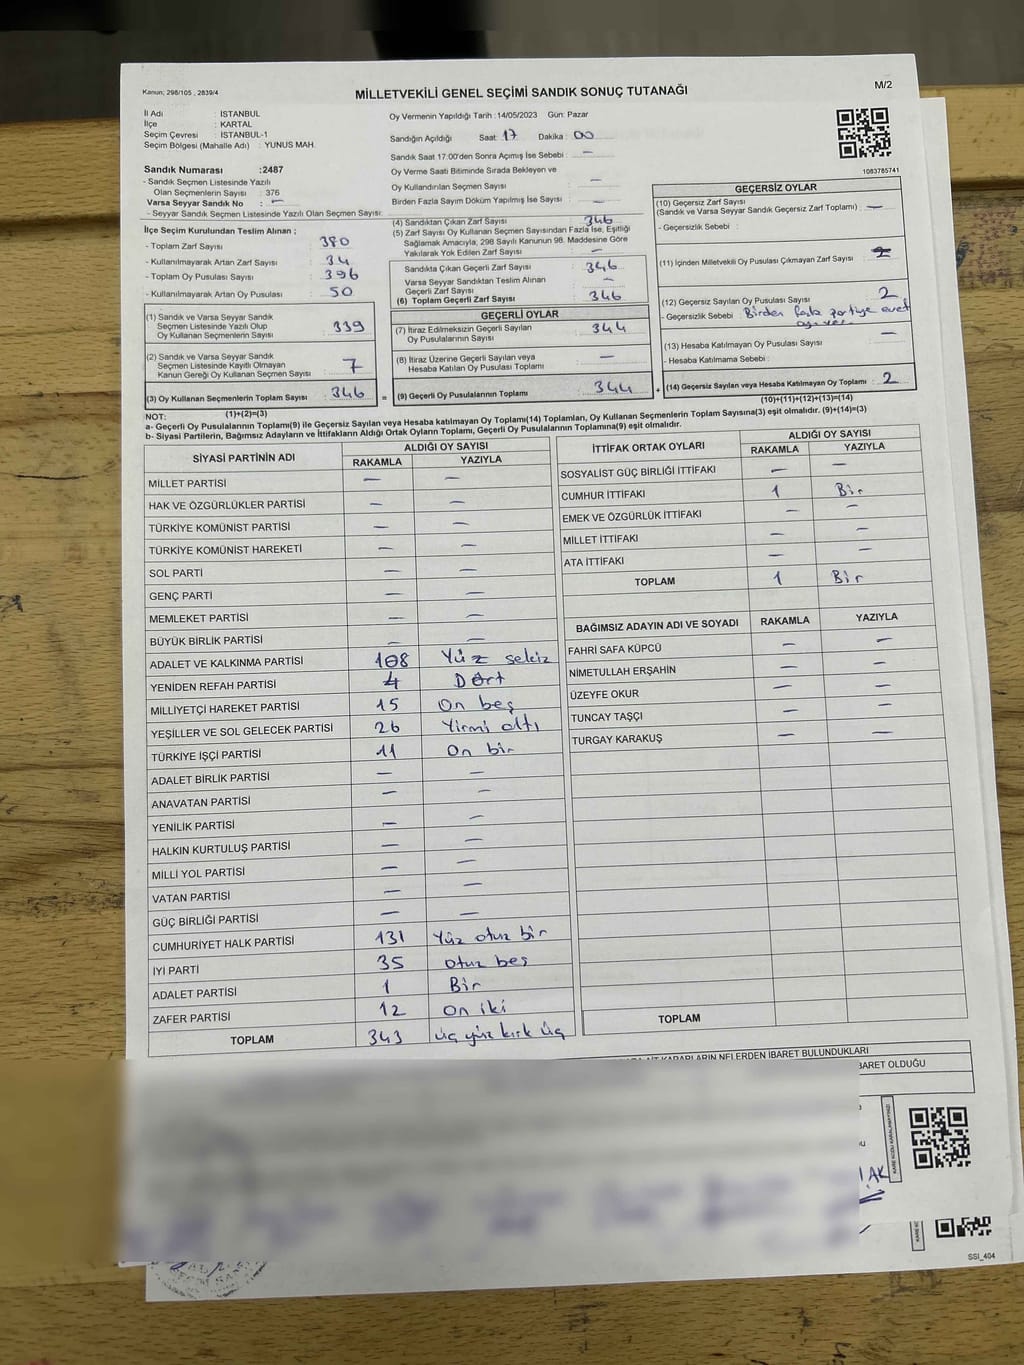 Kanun; 298/105 , 2839/4
MİLLETVEKİLİ GENEL SEÇİMİ SANDIK SONUÇ TUTANAĞI
M/2
İl Adı : İSTANBUL
İlçe : KARTAL
Seçim Çevresi : İSTANBUL-1
Seçim Bölgesi (Mahalle Adı) : YUNUS MAH.
Oy Vermenin Yapıldığı Tarih :14/05/2023 Gün: Pazar
Sandığın Açıldığı Saat: 17 Dakika : 00
Sandık Saat 17:00'den Sonra Açımış İse Sebebi : —
Oy Verme Saati Bitiminde Sırada Bekleyen ve
Oy Kullandırılan Seçmen Sayısı : —
Birden Fazla Sayım Döküm Yapılmış İse Sayısı : —
1083785741
Sandık Numarası :2487
- Sandık Seçmen Listesinde Yazılı
Olan Seçmenlerin Sayısı : 376
Varsa Seyyar Sandık No : —
- Seyyar Sandık Seçmen Listesinde Yazılı Olan Seçmen Sayısı:
İlçe Seçim Kurulundan Teslim Alınan ;
- Toplam Zarf Sayısı : 380
- Kullanılmayarak Artan Zarf Sayısı : 34
- Toplam Oy Pusulası Sayısı : 396
- Kullanılmayarak Artan Oy Pusulası : 50
(1) Sandık ve Varsa Seyyar Sandık
Seçmen Listesinde Yazılı Olup
Oy Kullanan Seçmenlerin Sayısı : 339
(2) Sandık ve Varsa Seyyar Sandık
Seçmen Listesinde Kayıtlı Olmayan
Kanun Gereği Oy Kullanan Seçmen Sayısı : 7
(3) Oy Kullanan Seçmenlerin Toplam Sayısı : 346
(1)+(2)=(3)
(4) Sandıktan Çıkan Zarf Sayısı : 346
(5) Zarf Sayısı Oy Kullanan Seçmen Sayısından Fazla İse, Eşitliği
Sağlamak Amacıyla, 298 Sayılı Kanunun 98. Maddesine Göre
Yakılarak Yok Edilen Zarf Sayısı : —
Sandıkta Çıkan Geçerli Zarf Sayısı : 346
Varsa Seyyar Sandıktan Teslim Alınan
Geçerli Zarf Sayısı : —
(6) Toplam Geçerli Zarf Sayısı : 346
GEÇERLİ OYLAR
(7) İtiraz Edilmeksizin Geçerli Sayılan
Oy Pusulalarının Sayısı : 344
(8) İtiraz Üzerine Geçerli Sayılan veya
Hesaba Katılan Oy Pusulası Toplamı : —
= (9) Geçerli Oy Pusulalarının Toplamı : 344
GEÇERSİZ OYLAR
(10) Geçersiz Zarf Sayısı
(Sandık ve Varsa Seyyar Sandık Geçersiz Zarf Toplamı) : —
- Geçersizlik Sebebi :
(11) İçinden Milletvekili Oy Pusulası Çıkmayan Zarf Sayısı :
(12) Geçersiz Sayılan Oy Pusulası Sayısı : 2
- Geçersizlik Sebebi : Birden fazla partiye evet
(13) Hesaba Katılmayan Oy Pusulası Sayısı : —
- Hesaba Katılmama Sebebi :
+ (14) Geçersiz Sayılan veya Hesaba Katılmayan Oy Toplamı : 2
(10)+(11)+(12)+(13)=(14)
NOT:
a- Geçerli Oy Pusulalarının Toplamı(9) ile Geçersiz Sayılan veya Hesaba katılmayan Oy Toplamı(14) Toplamları, Oy Kullanan Seçmenlerin Toplam Sayısına(3) eşit olmalıdır. (9)+(14)=(3)
b- Siyasi Partilerin, Bağımsız Adayların ve İttifakların Aldığı Ortak Oyların Toplamı, Geçerli Oy Pusulalarının Toplamına(9) eşit olmalıdır.
SİYASİ PARTİNİN ADI ALDIĞI OY SAYISI
RAKAMLA YAZIYLA
MİLLET PARTİSİ — —
HAK VE ÖZGÜRLÜKLER PARTİSİ — —
TÜRKİYE KOMÜNİST PARTİSİ — —
TÜRKİYE KOMÜNİST HAREKETİ — —
SOL PARTİ — —
GENÇ PARTİ —
MEMLEKET PARTİSİ — —
BÜYÜK BİRLİK PARTİSİ — —
ADALET VE KALKINMA PARTİSİ 108 Yüz sekiz
YENİDEN REFAH PARTİSİ 4 Dört
MİLLİYETÇİ HAREKET PARTİSİ 15 On beş
YEŞİLLER VE SOL GELECEK PARTİSİ 26 Yirmi altı
TÜRKİYE İŞÇİ PARTİSİ 11 On bir
ADALET BİRLİK PARTİSİ — —
ANAVATAN PARTİSİ — —
YENİLİK PARTİSİ — —
HALKIN KURTULUŞ PARTİSİ — —
MİLLİ YOL PARTİSİ — —
VATAN PARTİSİ — —
GÜÇ BİRLİĞİ PARTİSİ — —
CUMHURİYET HALK PARTİSİ 131 Yüz otuz bir
İYİ PARTİ 35 otuz beş
ADALET PARTİSİ 1 Bir
ZAFER PARTİSİ 12 On iki
TOPLAM 343 üç yüz kırk üç
İTTİFAK ORTAK OYLARI ALDIĞI OY SAYISI
RAKAMLA YAZIYLA
SOSYALİST GÜÇ BİRLİĞİ İTTİFAKI — —
CUMHUR İTTİFAKI 1 Bir
EMEK VE ÖZGÜRLÜK İTTİFAKI — —
MİLLET İTTİFAKI — —
ATA İTTİFAKI — —
TOPLAM 1 Bir
BAĞIMSIZ ADAYIN ADI VE SOYADI RAKAMLA YAZIYLA
FAHRİ SAFA KÜPCÜ — —
NİMETULLAH ERŞAHİN — —
ÜZEYFE OKUR — —
TUNCAY TAŞÇI — —
TURGAY KARAKUŞ — —
TOPLAM
KARARLARIN NELERDEN İBARET BULUNDUKLARI
BARET OLDUĞU
SSI_404